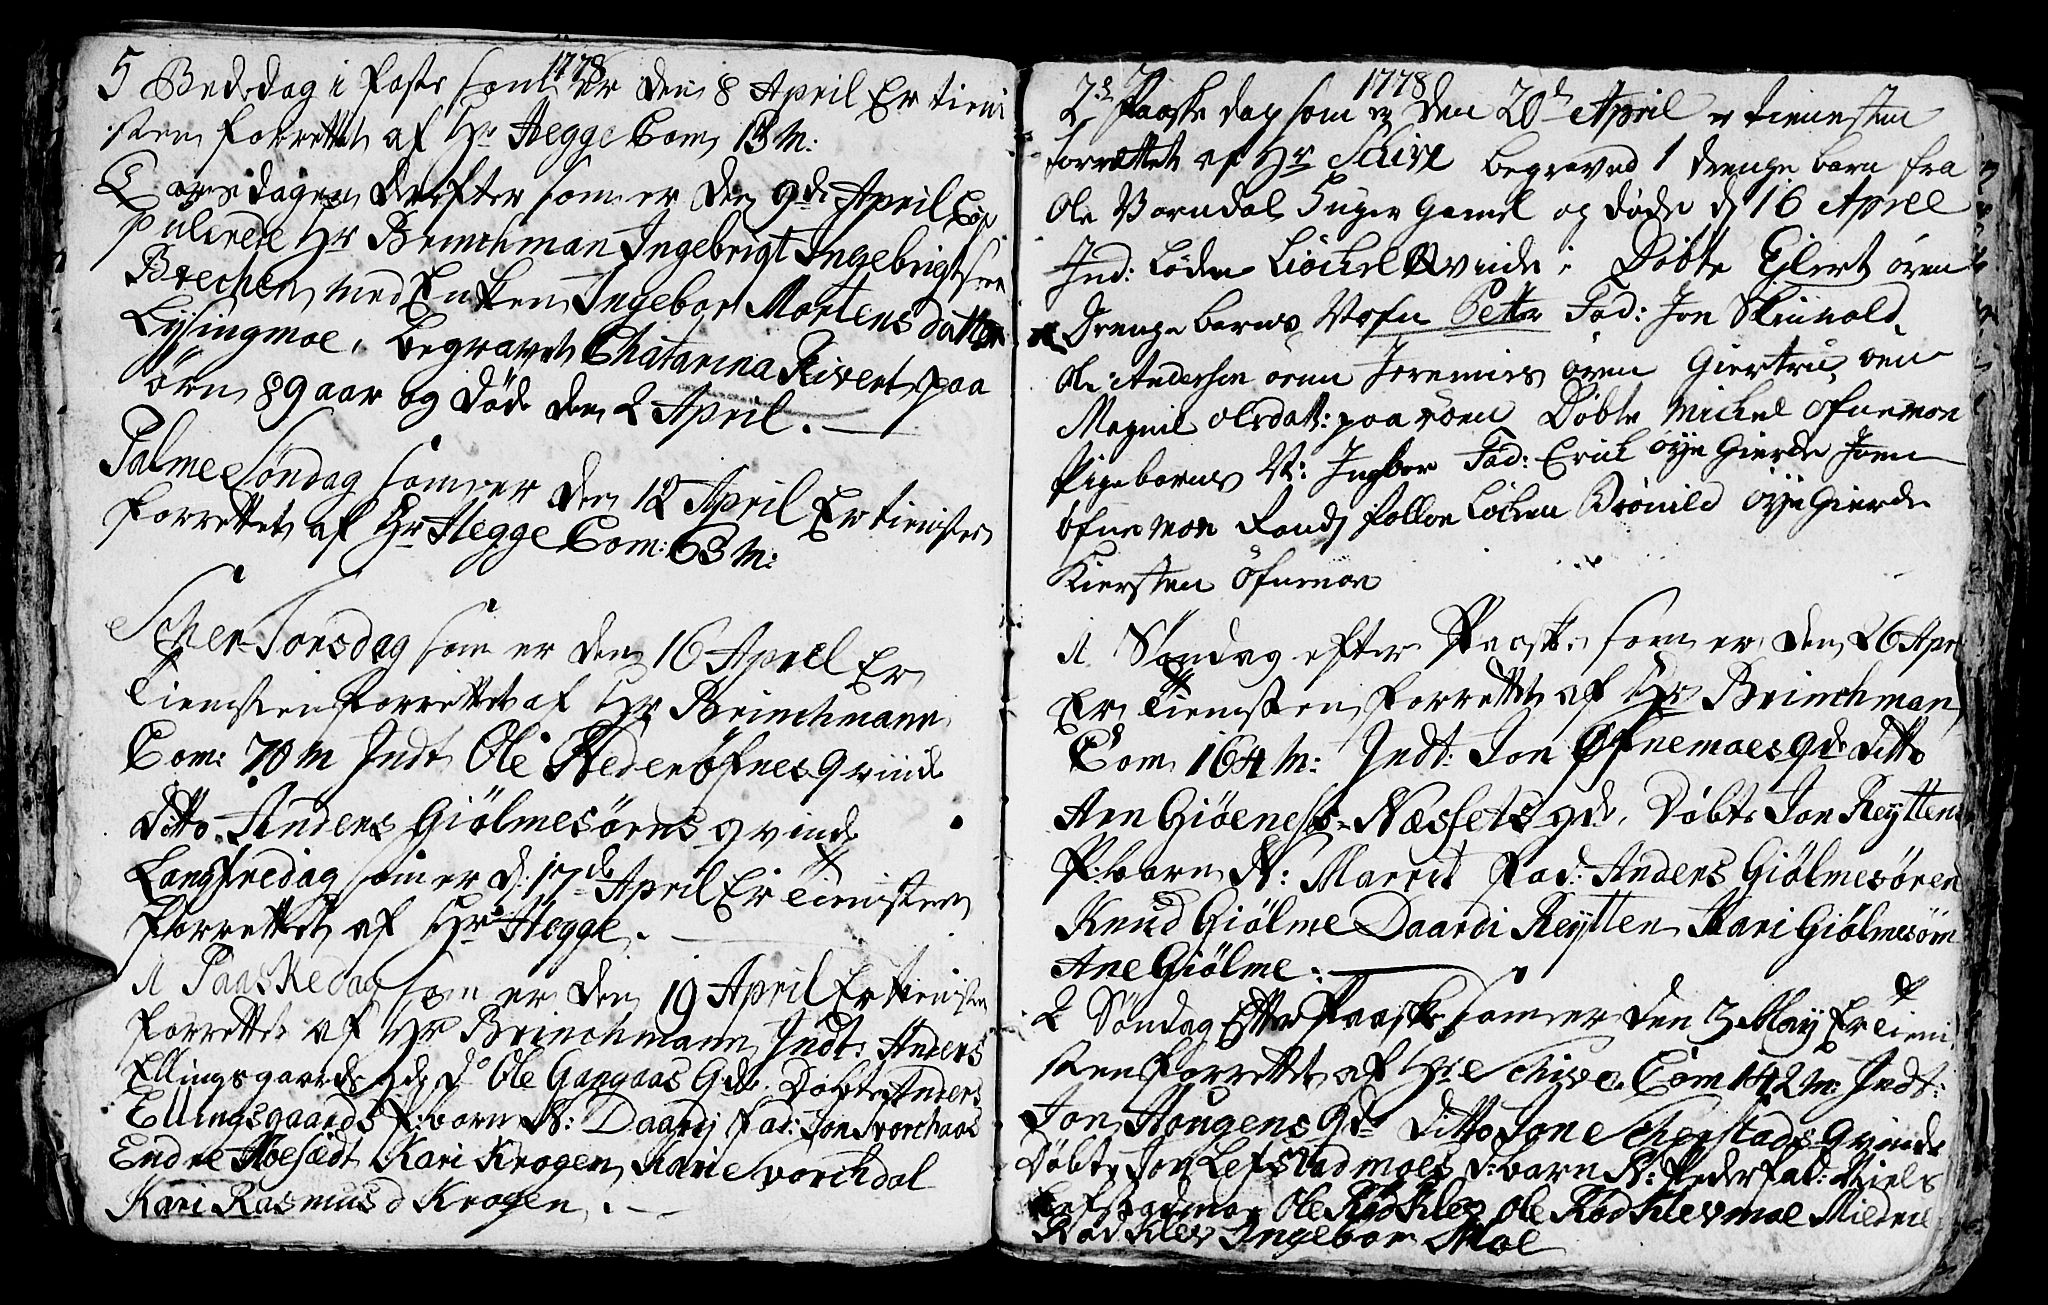 1778
5 Bededag i Faste som er den 8 April Er tieni
sten forrettet af Hr Hegge Com 13 M:
Torsdagen derefter som er den 9de April Cop
pulerede Hr Brinchman Ingebrigt Ingebrigtsen
Brechen med Enken Ingebor Mortens datter
Lysingmoe, begravet Chatarina Sivert paa
ören 89 aar og döde den 2 April.
Palme Söndag som er den 12 April Er tienisten
forrettet af Hr Hegge Com: 63 M:
Scher Torsdag som er den 16 April Er
Tienisten forrettet af Hr Brinchmann
Com: 70 M Indt Ole Neder öfnes Qvinde
ditto Anders Giölmesörens qvinde
Langfredag som er d: 17de April Er Tienisten
forrettet af Hr Hegge.
1 Paaskedag som er den 19 April Er tienisten
forrettet af Hr Brinchmann Indt: Anders
Ellingsgaards qde do Ole Gangaas Qde. Döbte Anders
Ellingsgaards P:barn N: Daardj Fad: Jon Svorchaas
Endre Moe Kari Krogen Kari Svorchdal
Kari Rasmusd Krogen.
1778
2den Paaske dag som er den 20de April er tienesten
forrettet af Hr Schive begraved 1 drenge barn fra
Ole Vorndal 5 uger gamel og döde d 16 April
Ind: Löden Löchel Qvinde. Döbte Eilert ören
Drenge barns Nafn Petter Fad: Jon Skinvold
Ole Andersen ören Jeremies ören Giertru ören
Magnil Olsdatt: paa ören Döbte Michel öfuemoe
Pige barns N: Ingebor Fad: Erich öye Gierde Joen
öfuemoe Randj Löchen Brönild öye Gierde
Kiersten öfuemoe
1 Söndag efter Paaske som er den 26 Apr
Er Tienisten forrettet af Hr Brinchman
Com 164 M: Indt: Jon Öfnemoes qde ditto
Arn Næssets qde, Döbte Jon Reytten
P:barn N: Marrit Fad: Anders Giölmesören
Knud Giölme Daardi Reytten Kari Giölmesören
Ane Giölme.
2 Söndag Efter Paaske som er den 3 May Er Tieni
sten forrettet af Hr Schive Com 142 M: Indt:
Jon Hougens Qde ditto Jon Scherstads Qvinde
Döbte Jon Lefstadmoes d:barn N: Peder Fad: Niels
Lefstadmoe Ole Rödklev Ole Rödklevmoe Mildre
Rödklev Ingebor Moe